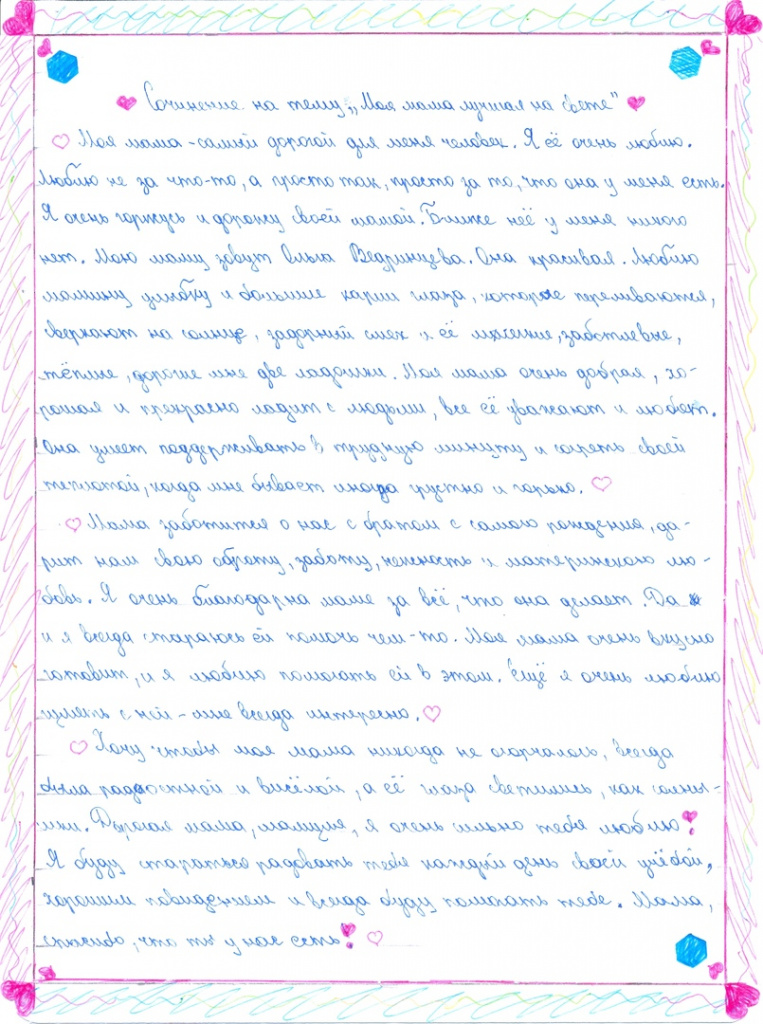 Сочинение на тему,, Моя мама лучшая на свете"
Моя мама - самый дорогой для меня человек. Я её очень люблю.
Люблю не за что-то, а просто так, просто за то, что она у меня есть.
Я очень горжусь и дорожу своей мамой. Ближе неё у меня никого
нет. Мою маму зовут Ольга. Она красивая. Люблю
мамину улыбку и большие карии глаза, которые переливаются,
сверкают на солнце, задорный смех и её мягкие, заботлевые,
тёплые, дорогие мне две ладошки. Моя мама очень добрая, хо-
рошая и прекрасно ладит с людьми, все её уважают и любят.
Она умеет поддерживать в трудную минуту и согреть своей
теплотой, когда мне бывает иногда грустно и горько.
Мама заботится о нас с братом с самого рождения, да-
рит нам свою доброту, заботу, нежность и материнскою лю-
бовь. Я очень благодарна маме за всё, что она делает. Да
и я всегда стараюсь ей помочь чем-то. Моя мама очень вкусно
готовит, и я люблю помогать ей в этом. Ещё я очень люблю
гулять с ней - мне всегда интересно.
Хочу чтобы моя мама никогда не огорчалось, всегда
была радостной и весёлой, а её глаза светились, как солны-
шки. Дорогая мама, мамуля, я очень сильно тебя люблю!
Я буду стараться радовать тебя каждый день своей учёбой,
хорошим поведением и всегда буду помогать тебе. Мама,
спасибо, что ты у нас есть!